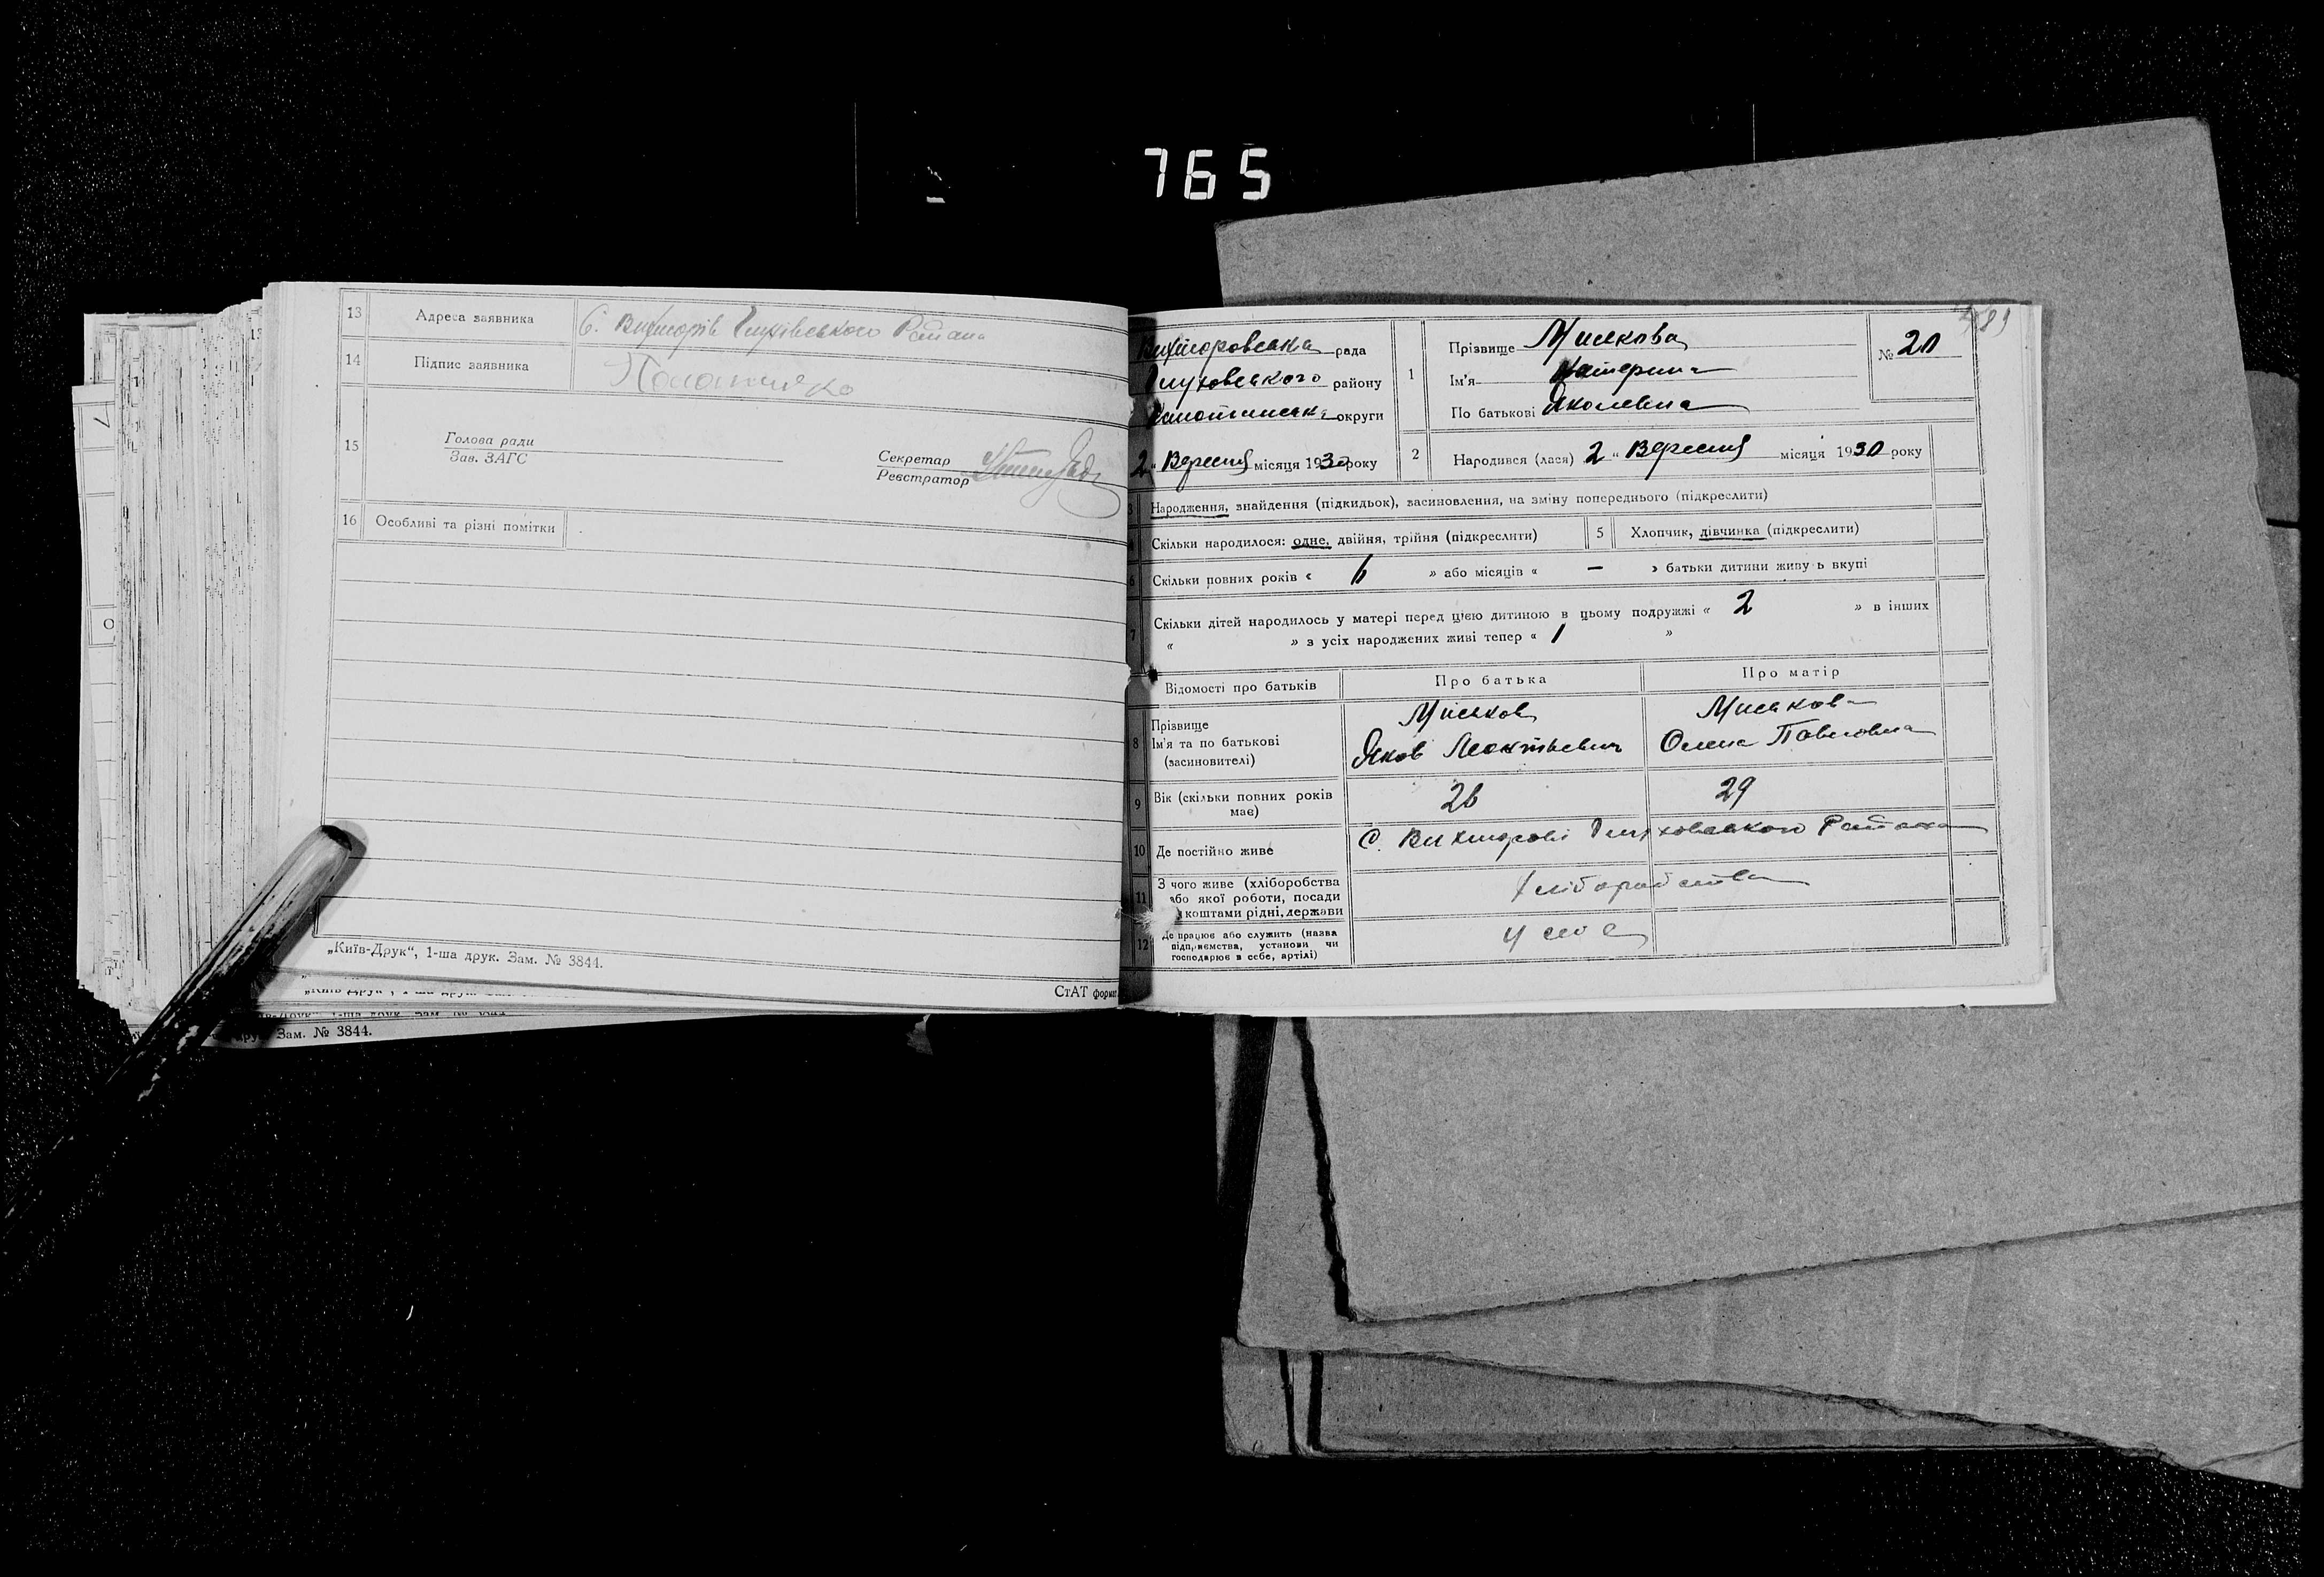 765
13 Адреса заявника С. Вихторів Глухівського Района
14 Підпис заявника
15 Голова ради
Зав. ЗАГС
Секретар
Реєстратор
16 Особливі та різні помітки
„Київ-Друк“, 1-ша друк. Зам. № 3844.
СтАТ форма
Зам. № 3844.
89
Вихторовська рада
Глуховського району
Конотопська округи
2 " Вересня місяця 1930 року
1 Прізвище Миськова
Ім'я Катерина
По батькові Яковлевна
№ 20
2 Народився (лася) 2 " Вересня місяця 1930 року
3 Народження, знайдення (підкидьок), засиновлення, на зміну попереднього (підкреслити)
Скільки народилося: одне, двійня, трійня (підкреслити) 5 Хлопчик, дівчинка (підкреслити)
6 Скільки повних років « 6 » або місяців « — » батьки дитини живу ь вкупі
7 Скільки дітей народилось у матері перед цією дитиною в цьому подружжі « 2 » в інших
« » з усіх народжених живі тепер « 1 »
Відомості про батьків Про батька Про матір
8 Прізвище Миськов Миськова
Ім'я та по батькові Яков Леонтьевич Олена Павловна
(засиновителі)
9 Вік (скільки повних років має) 26 29
10 Де постійно живе С. Вихторові Глуховського Района
11 З чого живе (хліборобства або якої роботи, посади коштами рідні, держави хліборобства
12 Де працює або служить (назва підприємства, установи чи господарює в себе, артілі) У себе